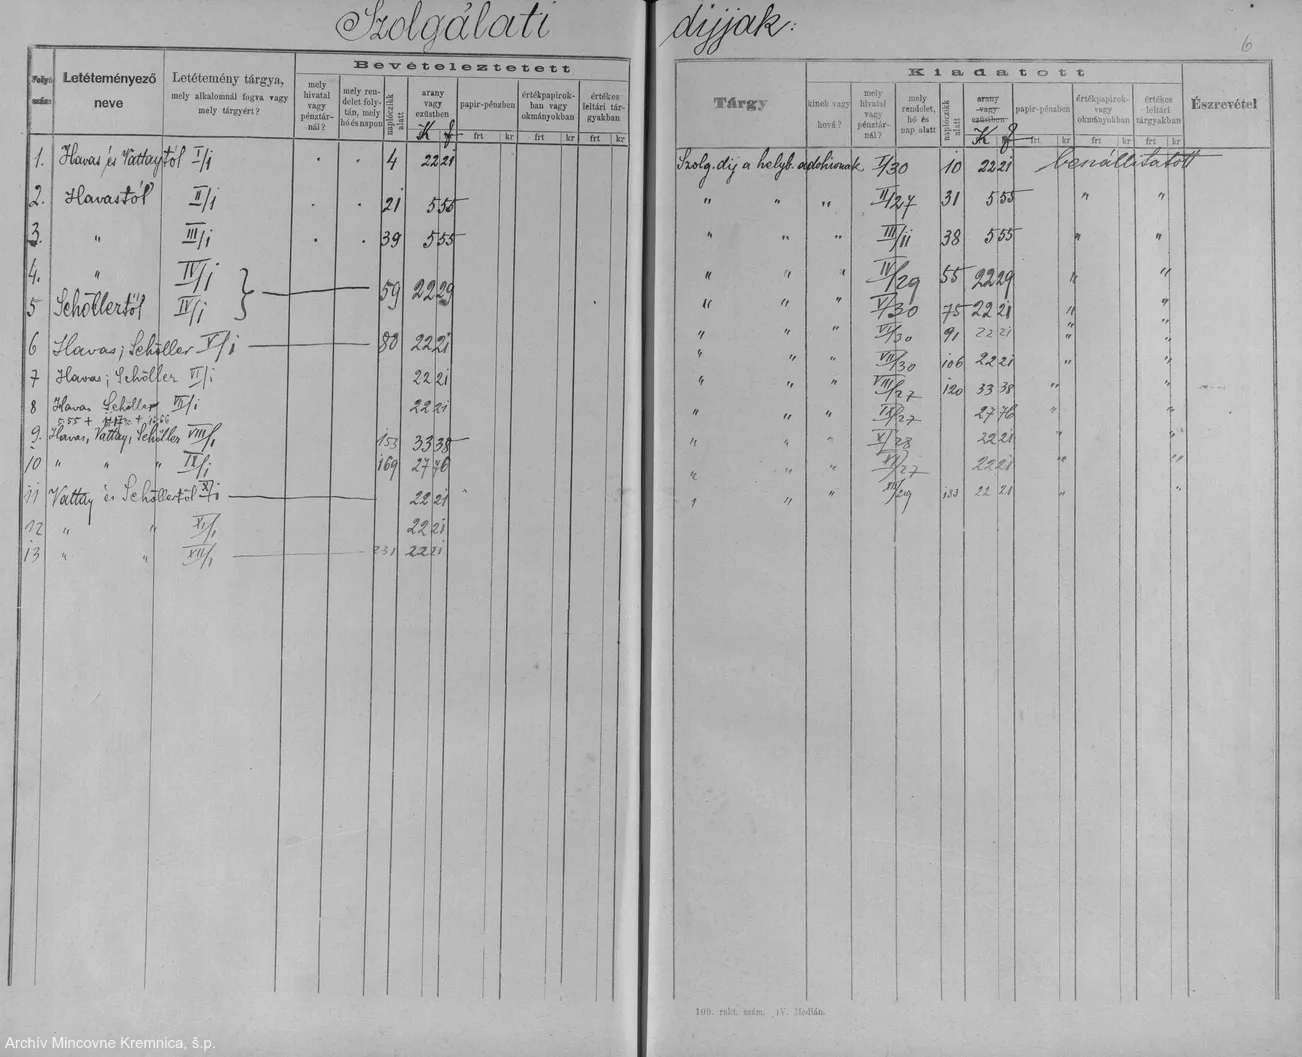 Szolgálati díjjak:
6
Bevételeztetett
Folyó szám
Letéteményező neve
Letétemény tárgya, mely alkalomnál fogva vagy mely tárgyért?
mely hivatal vagy pénztárnál?
mely rendelet folytán, mely hó és napon
naplóczikk alatt
arany vagy ezüstben
K f
papir-pénzben
frt kr
értékpapirokban vagy okmányokban
frt kr
értékes leltári tárgyakban
frt kr
1. Havas és Vattaytól I/1 4 22 21
2. Havastól II/1 21 5 55
3. " III/1 39 5 55
4. " IV/1
5 Schöllertől IV/1 59 22 29
6 Havas; Schöller V/1 80 22 21
7 Havas; Schöller VI/1 22 21
8 Havas Schöller VII/1 22 21
9. Havas, Vattay, Schöller VIII/1 153 33 38
10 " " " IX/1 169 27 76
11 Vattay és Schöllertöl X/1 22 21
12 " " XI/1 22 21
13 " " XII/1 231 22 21
Kiadatott
Tárgy
kinek vagy hová?
mely hivatal vagy pénztárnál?
mely rendelet, hó és nap alatt
naplóczikk alatt
arany vagy ezüstben
K f
papir-pénzben
frt kr
értékpapirokban vagy okmányokban
frt kr
értékes leltári tárgyakban
frt kr
Észrevétel
Szolg. díj a helyb. adóhivnak I/30 10 22 21 beszállitatott
" " " II/27 31 5 55 " "
" " " III/11 38 5 55 " "
" " " IV/29 55 22 29 " "
" " " V/30 75 22 21 " "
" " " VI/30 91 22 21 " "
" " " VII/30 106 22 21 " "
" " " VIII/27 120 33 38 " "
" " " IX/27 27 76 " "
" " " X/28 22 21 " "
" " " XI/27 22 21 " "
" " " XII/29 183 22 21 " "
109. rakt. szám. IV. Modlán.
Archív Mincovne Kremnica, š.p.